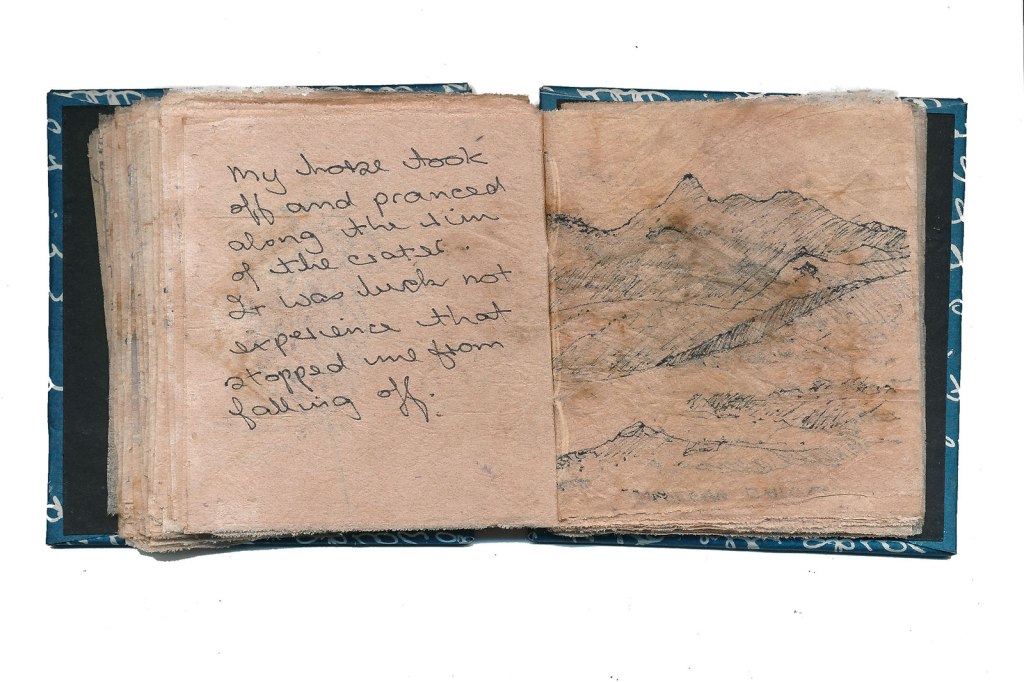 My horse took
off and pranced
along the rim
of the crater.
It was luck not
experience that
stopped me from
falling off.